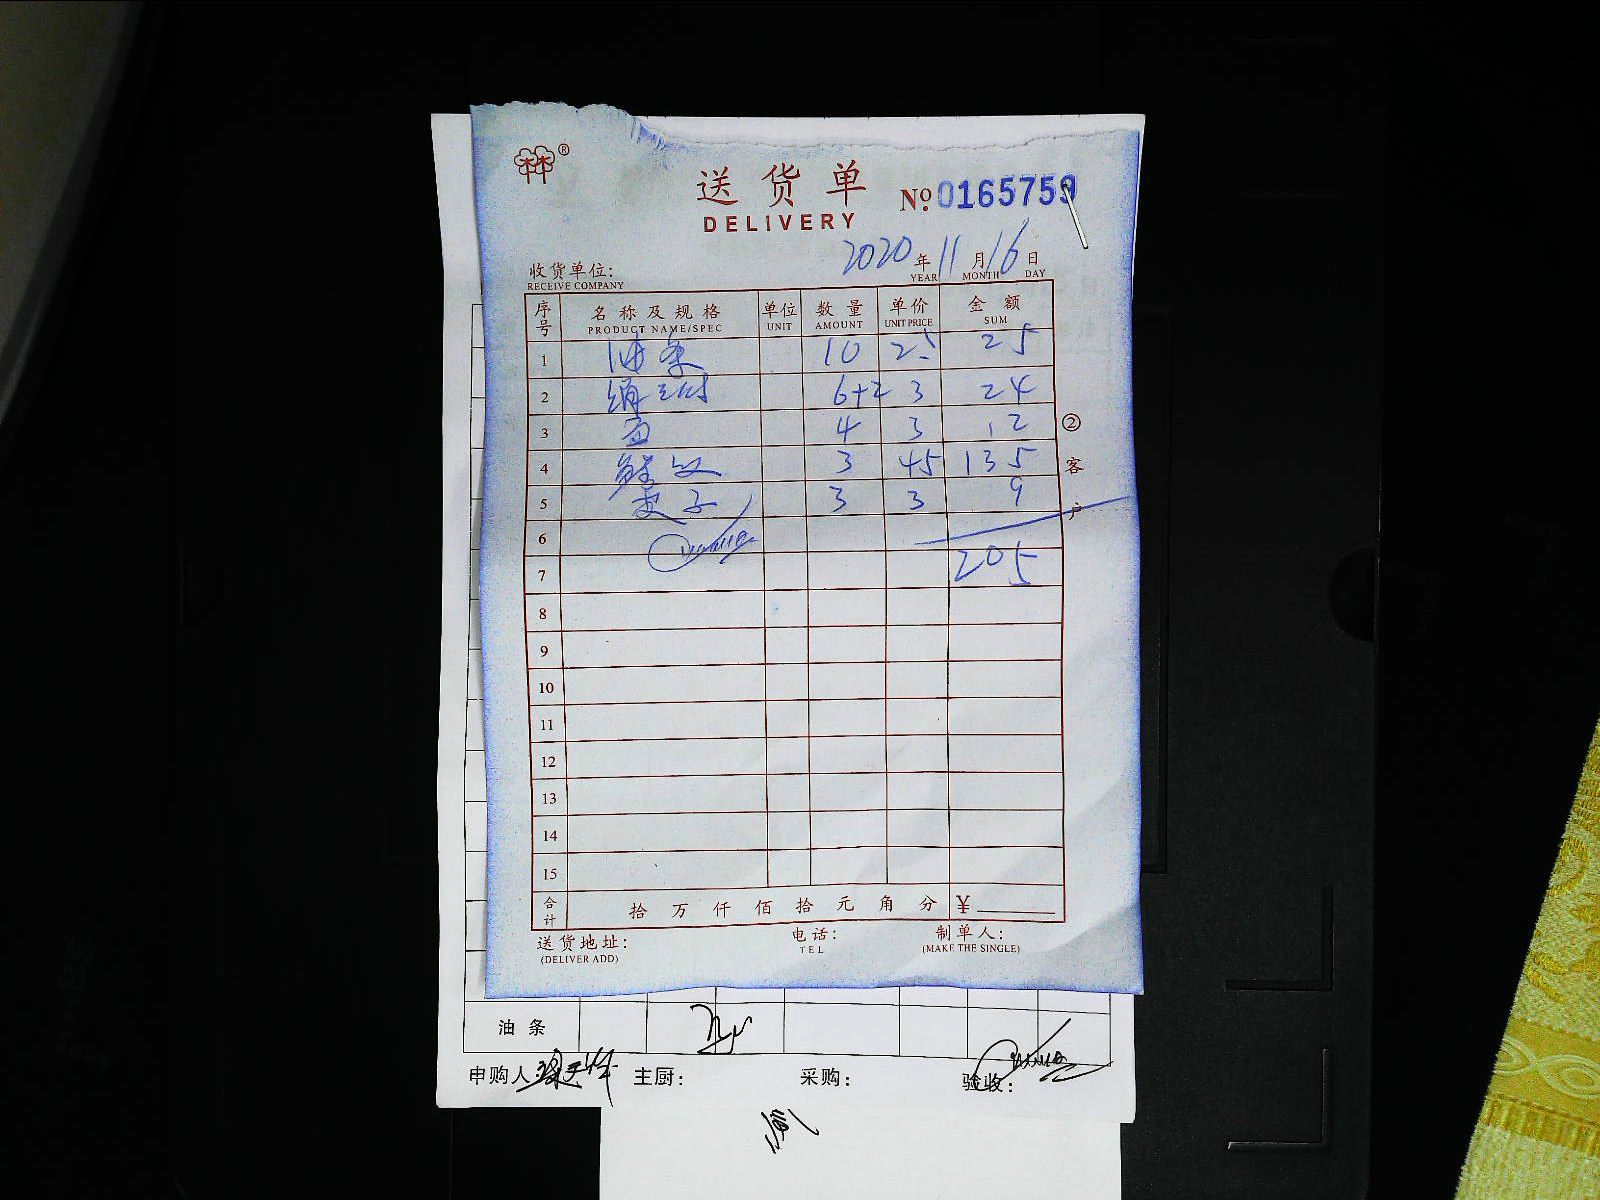 ®
送货单 №0165759
DELIVERY
2020年11月16日
YEAR MONTH DAY
收货单位:
RECEIVE COMPANY
序号 名称及规格 单位 数量 单价 金额
PRODUCT NAME/SPEC UNIT AMOUNT UNIT PRICE SUM
1 油条 10 2.5 25
2 6+2 3 24
3 4 3 12
4 3 45 135
5 3 3 9
6
7 205
8
9
10
11
12
13
14
15
合计 拾万仟佰拾元角分 ¥
②客户
送货地址: 电话: 制单人:
(DELIVER ADD) TEL (MAKE THE SINGLE)
油条
申购人 主厨: 采购: 验收: